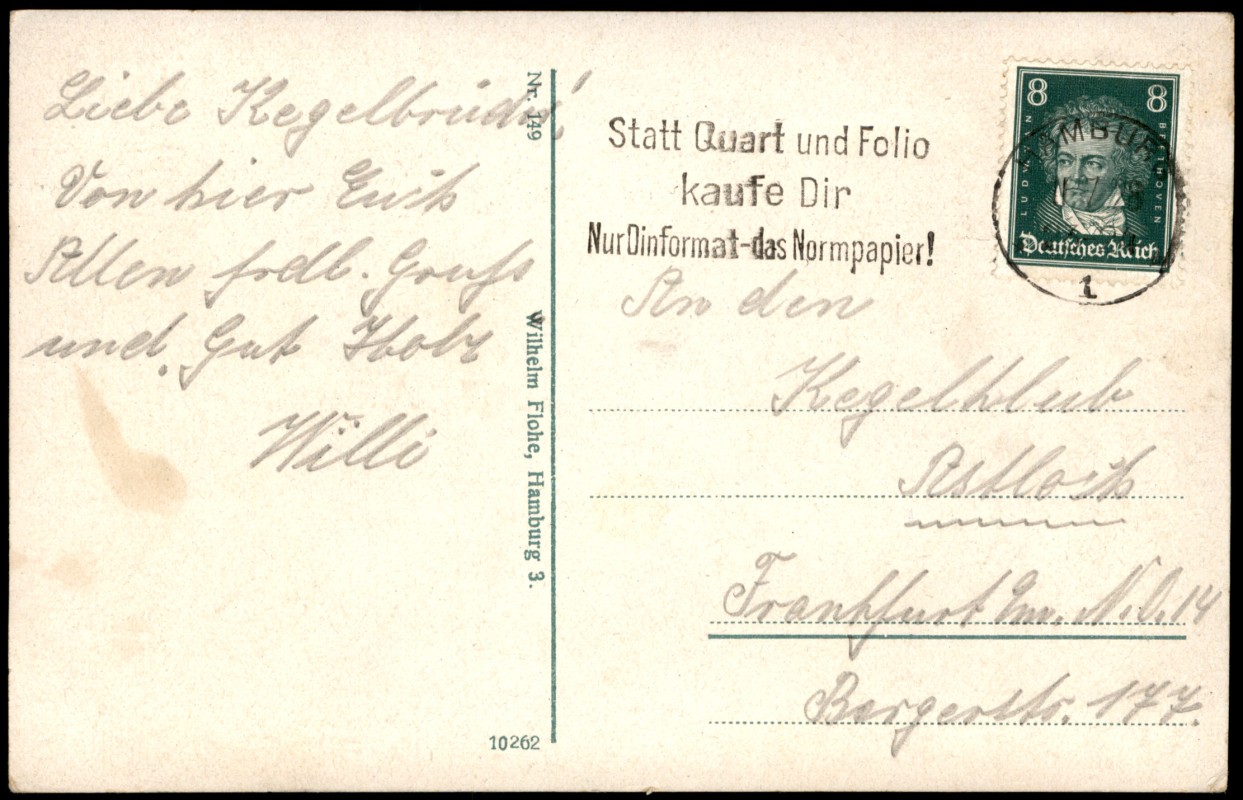 Liebe Kegelbrüder!
Von hier Euch
Allen frdl. Gruß
und Gut Holz
Willi
Nr. 149
Wilhelm Flohe, Hamburg 3.
10262
Statt Quart und Folio
kaufe Dir
Nur Dinformat-das Normpapier!
8 8
LUDWIG VAN BEETHOVEN
Deutsches Reich
HAMBURG
1
An den
Kegelklub
Astloch
Frankfurt a/m. N.O. 14
Bergerstr. 177.